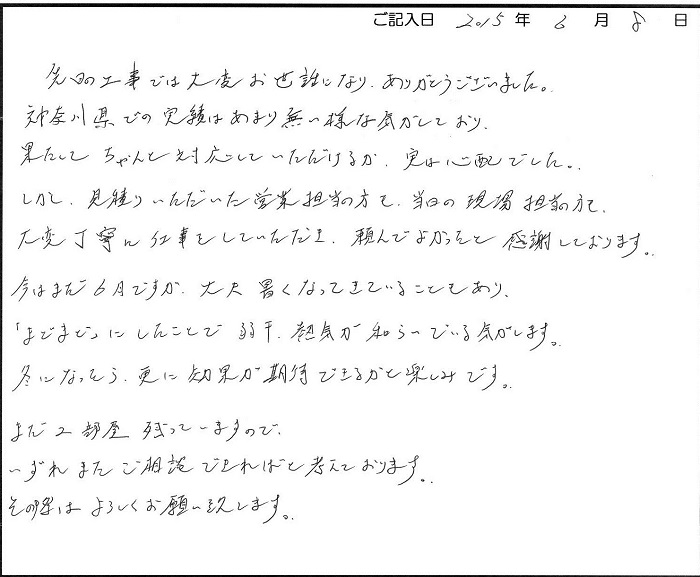 ご記入日 2015年 6月 8日
先日の工事では大変お世話になり、ありがとうございました。
神奈川県での実績はあまり無い様な気がしており、
果たして ちゃんと対応していただけるか、実は心配でした。
しかし、見積りいただいた営業担当の方も、当日の現場担当の方も、
大変丁寧に仕事をしていただき、頼んでよかったと感謝しております。
今はまだ6月ですが、大夫暑くなってきていることもあり、
「まどまど」にしたことで 弱干、熱気が和らいでいる気がします。
冬になったら、更に効果が期待できるかと楽しみです。
まだ2部屋残っていますので、
いずれまたご相談できればと考えております。
その際はよろしくお願い致します。